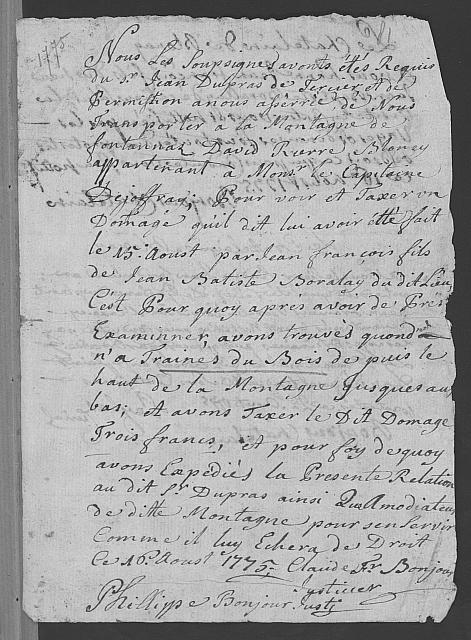 1775
Nous Les Soupsignes avonts étés Requis
du Sr. Jean Dupras de Fercier et de
Permettion a nous a
Transporter à la Montagne de
fontannaz David Pierre Bloney
appartenant à Monsr. le Capitaine
Dejoffrai, Pour voir et Taxer un
Domage quil dit lui avoir êtté fait
le 15e. Aoust par Jean françois fils
de Jean Batiste Boralay du dit Lieu,
C'est Pour quoy aprés avoir de Prés
Examinner, avons trouvés quond
n'a Trainés du Bois de puis le
haut de la Montagne jusques au
bas, et avons Taxer le Dit Domage
Trois francs, et pour foy de quoy
avons Expédiés la Presente Relation
au dit Sr. Dupras ainsi Qua modiateur
de ditte Montagne pour sen Servir
Comme il luy Echera de Droit
Ce 16e. Aoust 1775, Claude Fr. Bonjour
Justicier
Philippe Bonjour Justr